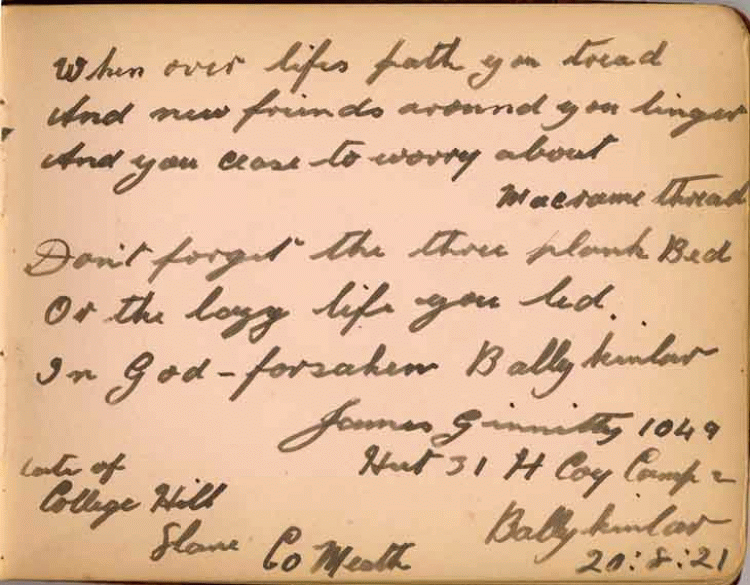 When over lifes path you tread
And new friends around you linger
And you cease to worry about
Macrame thread
Don't forget the three plank Bed
Or the lazy life you led.
In God-forsaken Ballykinlar
James Ginnitty 1049
Hut 31 H Coy Camp 2
Ballykinlar
20:8:21
late of
College Hill
Slane Co Meath